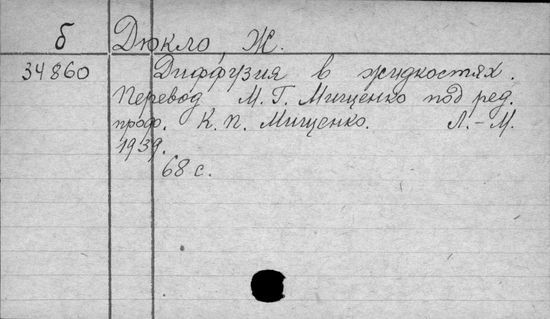 б Дюкло, Ж.
34860 Диффузия в жидкостях.
Перевод М. Г. Мищенко под ред.
проф. К. П. Мищенко. Л.-М.
1939.
68 с.